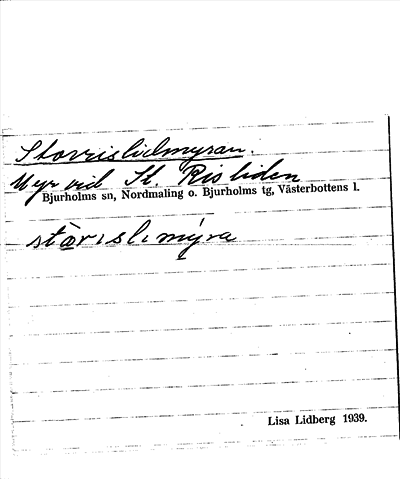 Storrislidmyran.
Myr vid St. Risliden
Bjurholms sn, Nordmaling o. Bjurholms tg, Västerbottens l.
stòrıslımýra
Lisa Lidberg 1939.